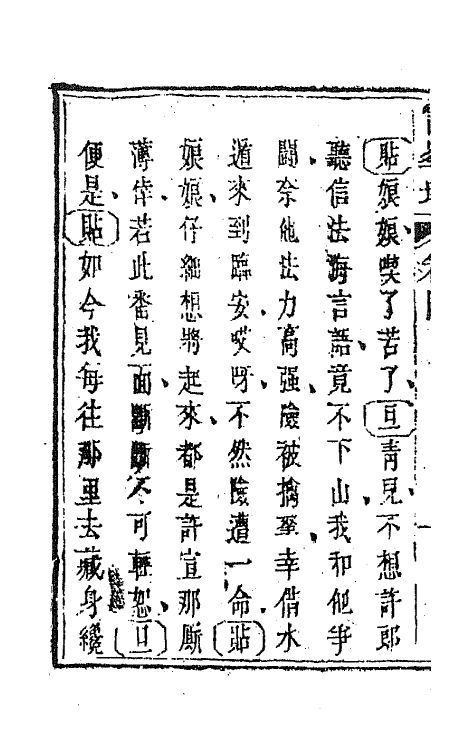 貼娘娘喫了苦了旦青兒不想許郎
聽信法海言語竟不下山我和他爭
鬪奈他法力高强險被擒拏幸借水
遁來到臨安哎呀不然險遭一命貼
娘娘仔細想將起來都是許宣那厮
薄倖若此番見面斷斷不可輕恕旦
便是貼如今我每往那里去藏身纔